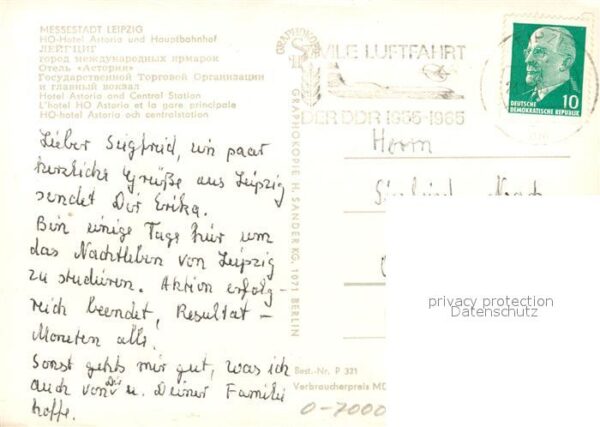 MESSESTADT LEIPZIG
HO-Hotel Astoria und Hauptbahnhof
ЛЕЙПЦИГ
город международных ярмарок
Отель «Астория»
Государственной Торговой Организации
и главный вокзал
Hotel Astoria and Central Station
L'hotel HO Astoria et la gare principale
HO-hotel Astoria och centralstation
Lieber Siegfried, ein paar
herzliche Grüße aus Leipzig
sendet Dir Erika.
Bin einige Tage hier um
das Nachtleben von Leipzig
zu studieren. Aktion erfolg-
reich beendet, Resultat –
Moneten alle.
Sonst gehts mir gut, was ich
auch von Dir u. Deiner Familie
hoffe.
GRAPHOKOPIE
GRAPHOKOPIE H. SANDER KG, 1071 BERLIN
Best.-Nr. P 321
Verbraucherpreis
0-7000
VILE LUFTFAHRT
DER DDR 1955-1965
DEUTSCHE
DEMOKRATISCHE REPUBLIK
10
Herrn
privacy protection
Datenschutz